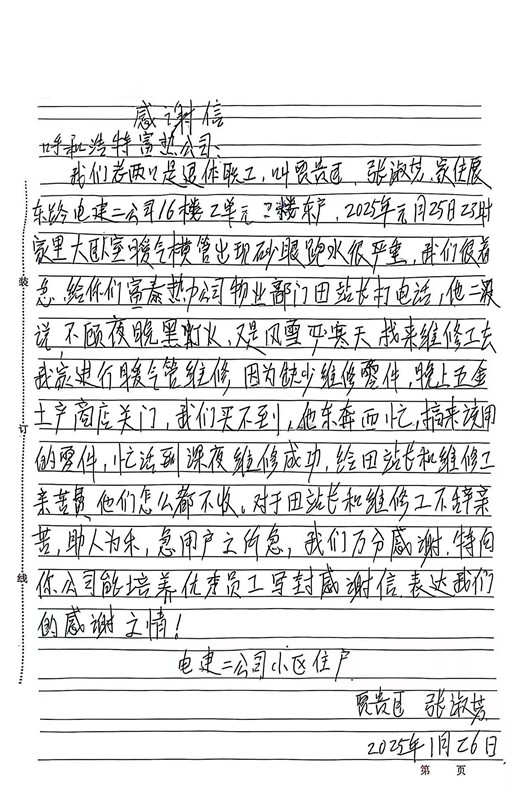 感谢信
呼和浩特富热公司:
我们老两口是退休职工,叫贾贵臣、张淑芳.家住展
东路电建二公司16楼2单元2楼东户,2025年元月25日23时
家里大卧室暖气横管出现砂眼跑水很严重,我们很着
急.给你们富泰热力公司物业部门田站长打电话,他二话没
说,不顾夜晚黑灯火,又是风雪严寒天找来维修工去
我家进行暖气管维修,因为缺少维修零件,晚上五金
土产商店关门,我们买不到,他东奔西忙,搞来该用
的零件,忙活到深夜维修成功,给田站长和维修工
辛苦费,他们怎么都不收.对于田站长和维修工不辞辛
苦,助人为乐,急用户之所急,我们万分感谢.特向
你公司能培养优秀员工写封感谢信.表达我们
的感谢之情!
电建二公司小区住户
张淑芳
2025年1月26日
装
订
线
第 页